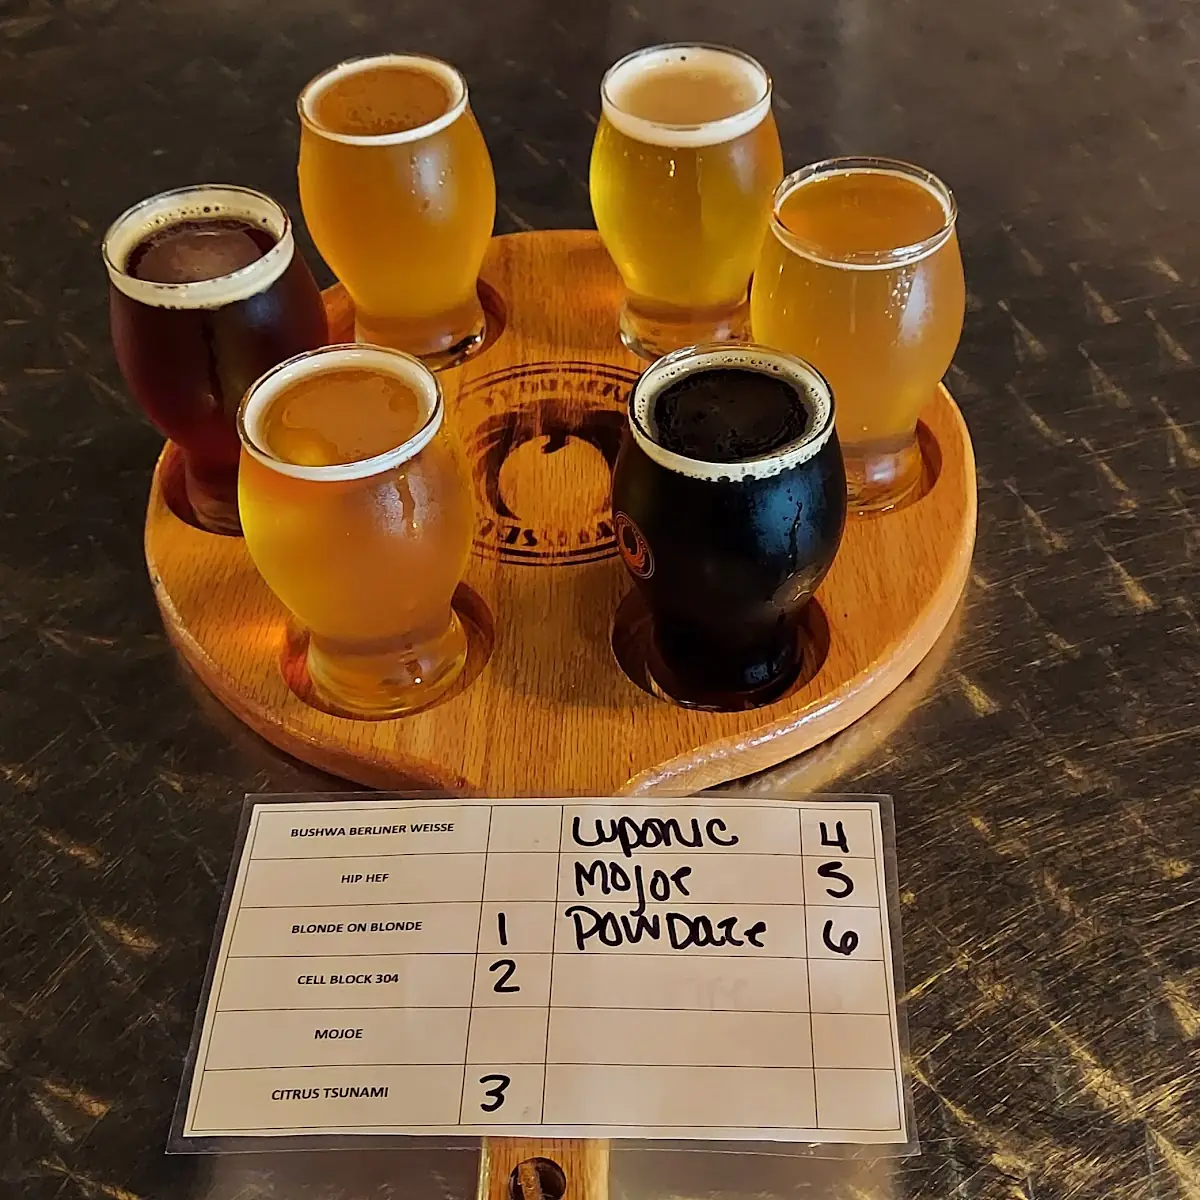 BUSHWA BERLINER WEISSE Luponic 4
HIP HEF Mojoe 5
BLONDE ON BLONDE 1 Pow Daze 6
CELL BLOCK 304 2
MOJOE
CITRUS TSUNAMI 3